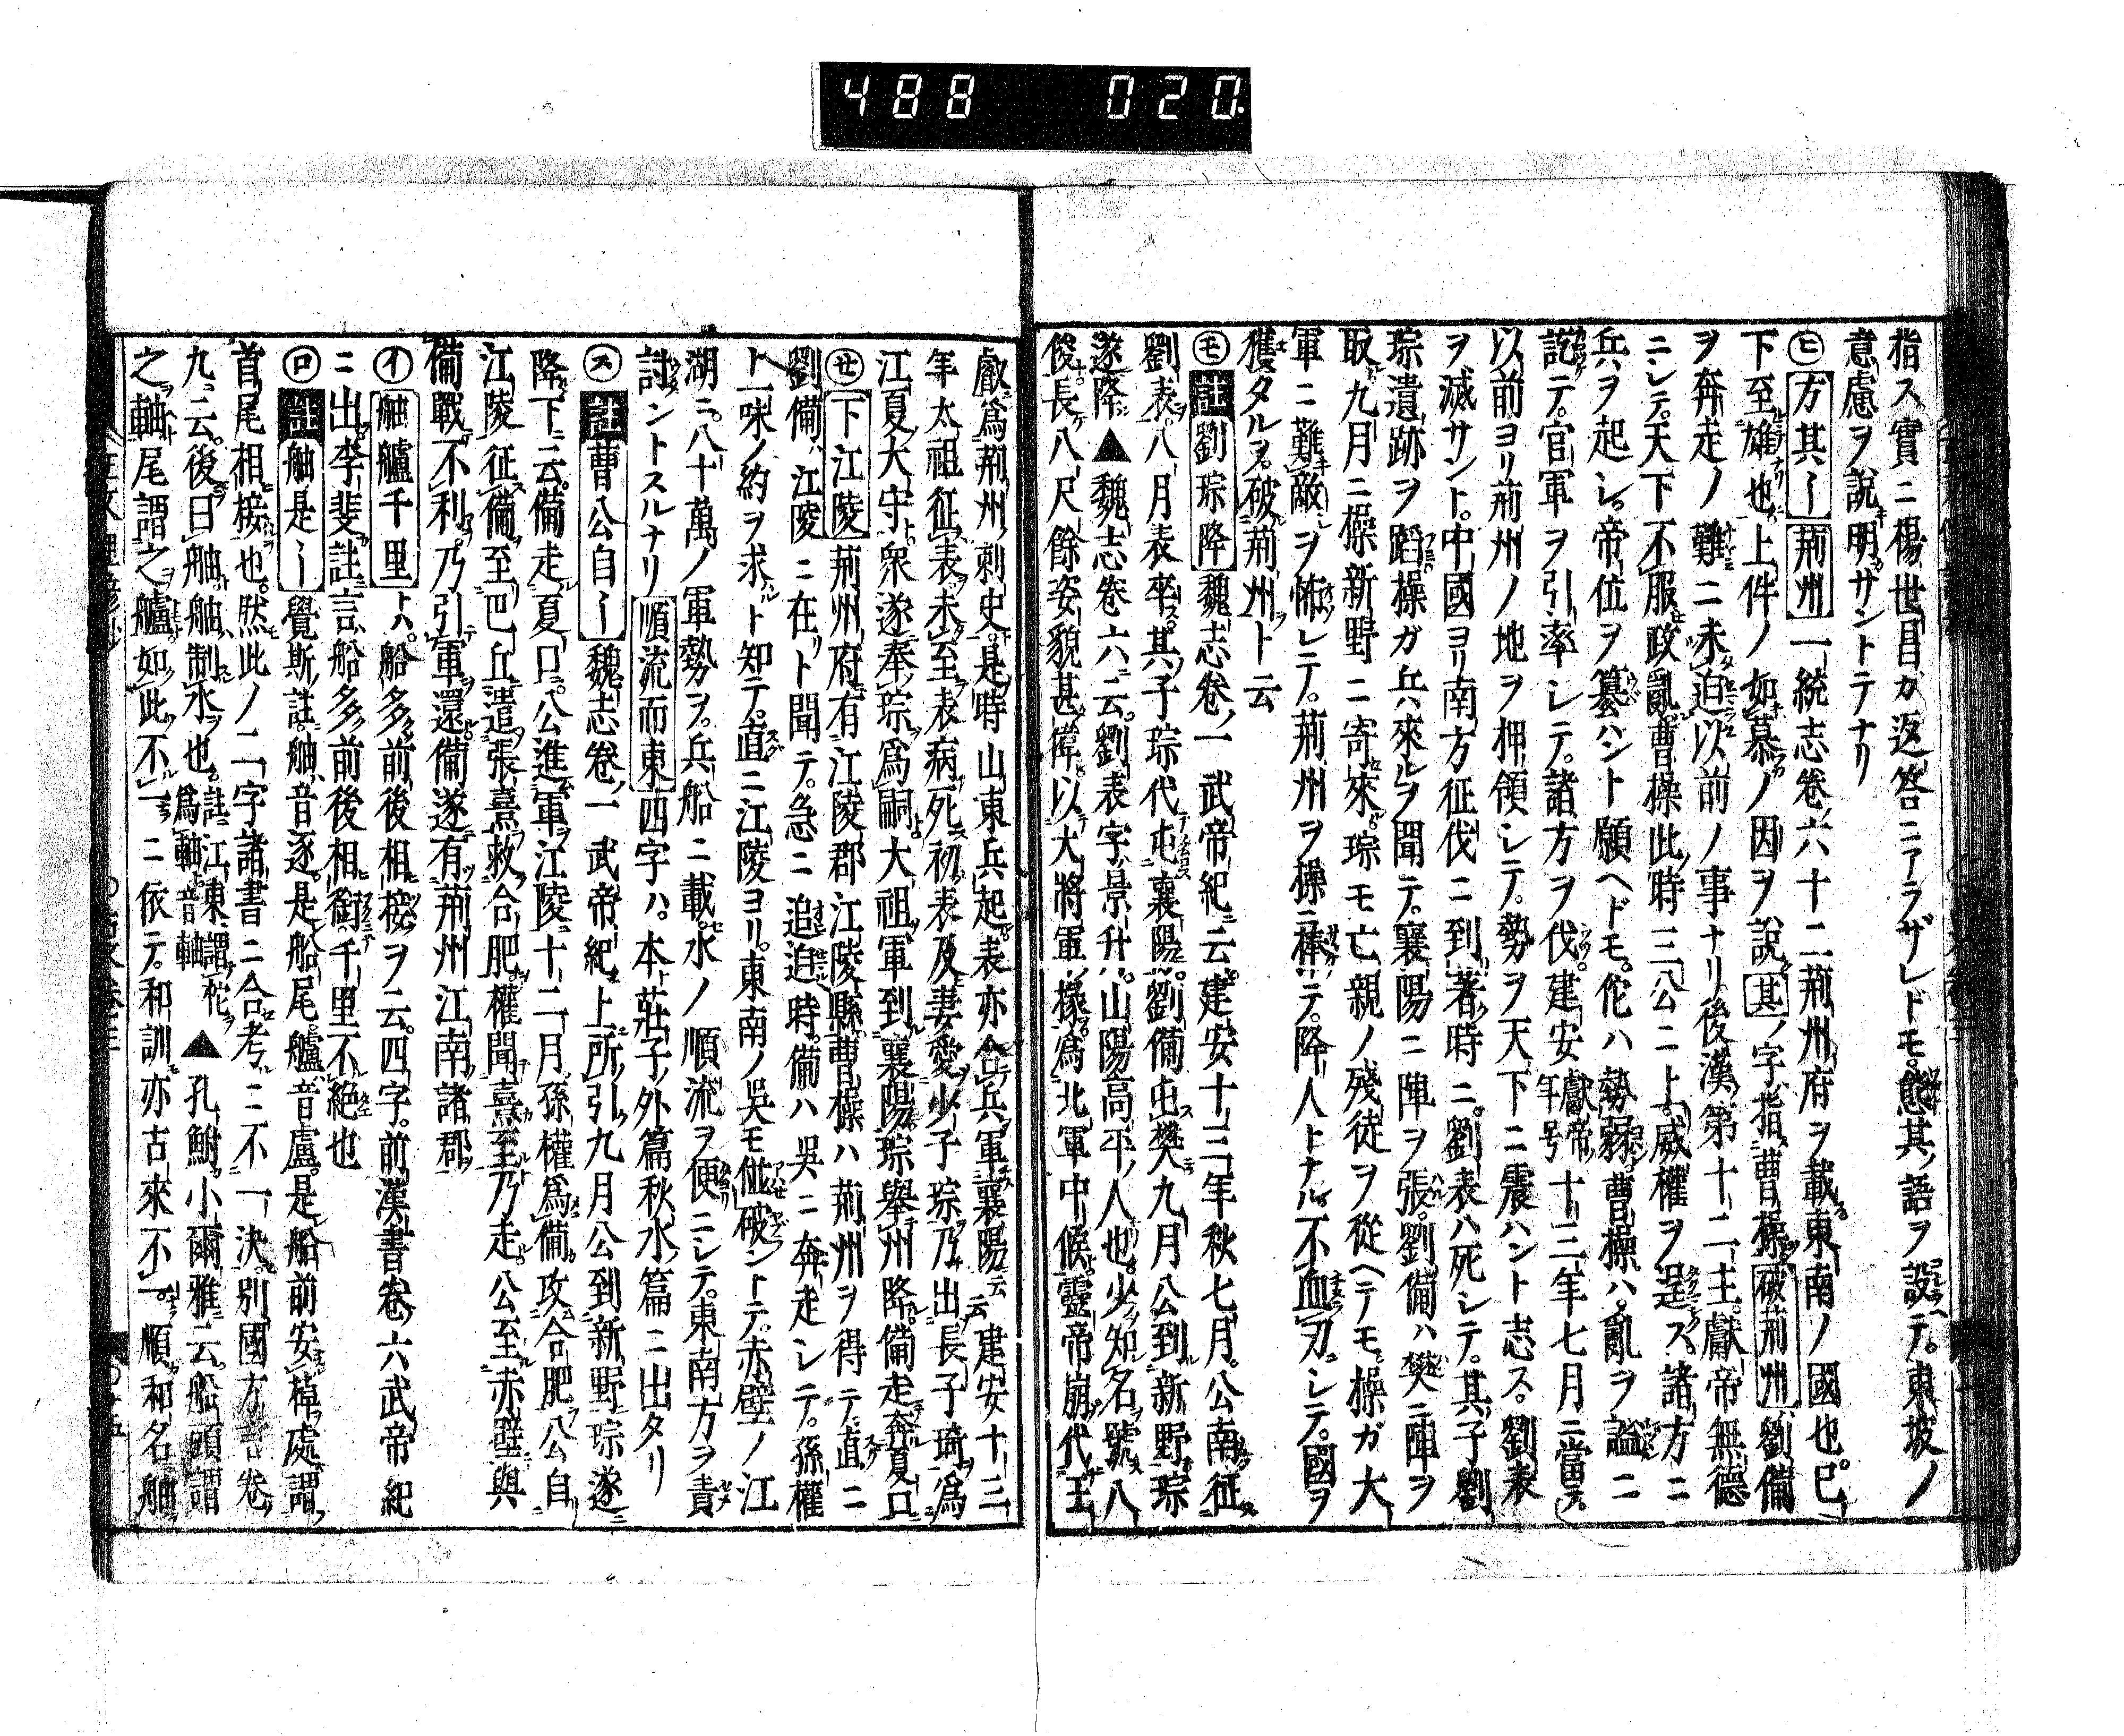 488 020
指ス實ニ楊世昌カ返答ニアラザレドモ態其語ヲ設テ東坡ノ
意慮ヲ説明サントテナリ
㋪方其〡荊州一統志卷六十二荊州府ヲ載東南ノ國也已
下至雄也上件ノ如慕ノ因ヲ説其ノ字指曹操破荊州劉備
ヲ奔走ノ難ニ未迫以前ノ事ナリ後漢第十二主獻帝無德
ニシテ天下不服政亂曹操此時三公ニ上威權ヲ逞ス諸方ニ
兵ヲ起シ帝位ヲ簒ハント願ヘドモ佗ハ勢弱曹操ハ亂ヲ謐ニ
託テ官軍ヲ引率シテ諸方ヲ伐建安獻帝年号十三年七月ニ當ス
以前ヨリ荊州ノ地ヲ押領シテ勢ヲ天下ニ震ハント志ス劉表
ヲ滅サント中國ヨリ南方征伐ニ到著時ニ劉表ハ死シテ其子劉
琮遺跡ヲ蹈操ガ兵來ルヲ聞テ襄陽ニ陣ヲ張劉備ハ樊ニ陣ヲ
取九月ニ操新野ニ寄來琮モ亡親ノ殘徒ヲ從ヘテモ操ガ大
軍ニ難敵ヲ怖レテ荊州ヲ操ニ棒テ降人トナル不血刃シテ國ヲ
獲タルヲ破荊州ト云
㋲註劉琮降魏志卷一武帝紀ニ云建安十三年秋七月公南征
劉表八月表卒其子琮代屯襄陽劉備屯樊九月公到新野琮
遂降▲魏志卷六云劉表字景升山陽高平人也少知名號八
俊長八尺餘姿貌甚偉以大將軍掾爲北軍中候靈帝崩代王
叡爲荊州刺史是時山東兵起表亦合兵軍襄陽云云建安十三
年太祖征表未至表病死初表及妻愛少子琮乃出長子琦爲
江夏大守衆遂奉琮爲嗣大祖軍到襄陽琮擧州降備走奔夏口
㋝下江陵荊州府有江陵郡江陵縣曹操ハ荊州ヲ得テ直ニ
劉備江陵ニ在ト聞テ急ニ追迫時備ハ吳ニ奔走シテ孫權
ト一味ノ約ヲ求ト知テ直ニ江陵ヨリ東南ノ吳モ併破ントテ赤壁ノ江
湖ニ八十萬ノ軍勢ヲ兵船ニ載水ノ順流ヲ便ニシテ東南方ヲ責
討ントスルナリ順流而東四字ハ本莊子外篇秋水篇ニ出タリ
㋜註曹公自〡魏志卷一武帝紀上所引九月公到新野琮遂
降下云備走夏口公進軍江陵十二月孫權爲備攻合肥公自
江陵征備至巴丘遣張憙救合肥權聞憙至乃走公至赤壁與
備戰不利乃引軍還備遂有荊州江南諸郡
㋑舳艫千里トハ船多前後相接ヲ云四字前漢書卷六武帝紀
ニ出李斐註言船多前後相銜千里不絶也
㋺註舳是〡覺斯註舳音逐是船尾艫音盧是船前安棹處謂
首尾相接也然此ノ二字諸書ニ合考ニ不一決別國方言卷
九云後曰舳舳制水也註江東謂柁爲軸音軸▲孔鮒小爾雅云船頭謂
之軸尾謂之艫如此不一ニ依テ和訓亦古來不一順和名舳